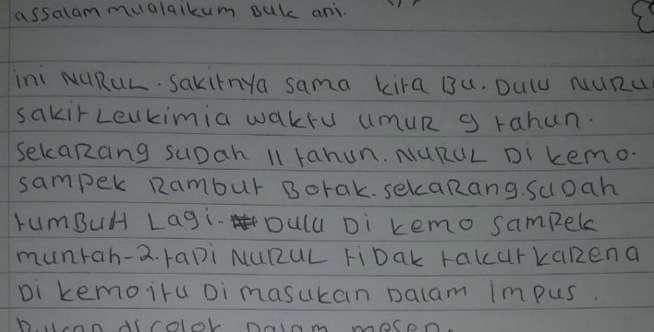 assalammualaikum Buk ani.
ini NURUL. Sakitnya sama kita Bu. Dulu NURU
sakit Leukimia waktu umuR 9 tahun.
SekaRang suDah 11 tahun. NURUL Di kemo.
sampek Rambut Botak. sekaRang. suDah
tumBuH Lagi. Dulu Di kemo sampek
muntah-2. tapi NURUL tiDak takut kaRena
Di kemo itu Di masukan Dalam Impus.
Bukan di colok Dalam mesen.